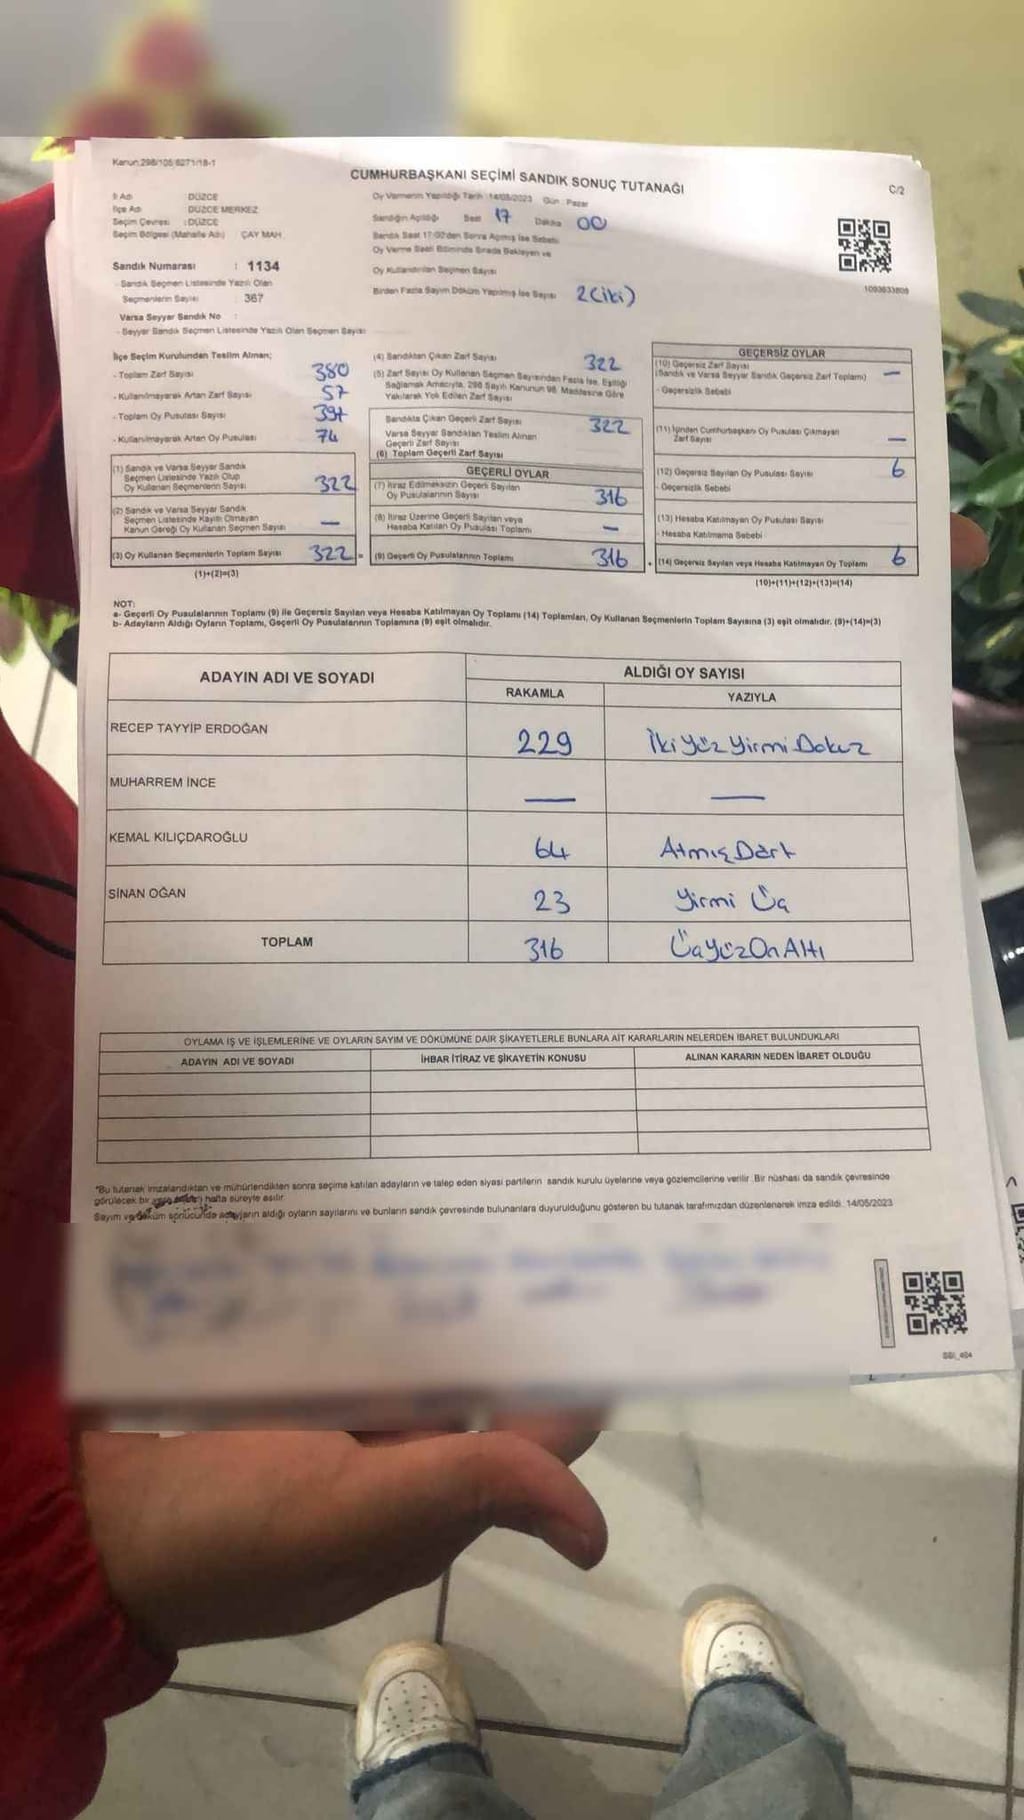 Kanun:298/105 6271/18-1
CUMHURBAŞKANI SEÇİMİ SANDIK SONUÇ TUTANAĞI
C/2
İl Adı DÜZCE
İlçe Adı DÜZCE MERKEZ
Seçim Çevresi : DÜZCE
Seçim Bölgesi (Mahalle Adı) ÇAY MAH.
Oy Vermenin Yapıldığı Tarih : 14/05/2023 Gün : Pazar
Sandığın Açıldığı Saat 17 Dakika 00
Sandık Saat 17:00'den Sonra Açılmış İse Sebebi
Oy Verme Saati Bitiminde Sırada Bekleyen ve
Oy Kullandırılan Seçmen Sayısı
Birden Fazla Sayım Döküm Yapılmış İse Sayısı 2(iki)
Sandık Numarası : 1134
- Sandık Seçmen Listesinde Yazılı Olan
Seçmenlerin Sayısı : 367
Varsa Seyyar Sandık No :
- Seyyar Sandık Seçmen Listesinde Yazılı Olan Seçmen Sayısı
1093633809
İlçe Seçim Kurulundan Teslim Alınan;
- Toplam Zarf Sayısı 380
- Kullanılmayarak Artan Zarf Sayısı 57
- Toplam Oy Pusulası Sayısı 397
- Kullanılmayarak Artan Oy Pusulası 74
(1) Sandık ve Varsa Seyyar Sandık
Seçmen Listesinde Yazılı Olup
Oy Kullanan Seçmenlerin Sayısı 322
(2) Sandık ve Varsa Seyyar Sandık
Seçmen Listesinde Kayıtlı Olmayan
Kanun Gereği Oy Kullanan Seçmen Sayısı —
(3) Oy Kullanan Seçmenlerin Toplam Sayısı 322 =
(1)+(2)=(3)
(4) Sandıktan Çıkan Zarf Sayısı 322
(5) Zarf Sayısı Oy Kullanan Seçmen Sayısından Fazla İse, Eşitliği
Sağlamak Amacıyla, 298 Sayılı Kanunun 98. Maddesine Göre
Yakılarak Yok Edilen Zarf Sayısı
Sandıkta Çıkan Geçerli Zarf Sayısı 322
Varsa Seyyar Sandıktan Teslim Alınan
Geçerli Zarf Sayısı
(6) Toplam Geçerli Zarf Sayısı
GEÇERLİ OYLAR
(7) İtiraz Edilmeksizin Geçerli Sayılan
Oy Pusulalarının Sayısı 316
(8) İtiraz Üzerine Geçerli Sayılan veya
Hesaba Katılan Oy Pusulası Toplamı —
(9) Geçerli Oy Pusulalarının Toplamı 316 +
GEÇERSİZ OYLAR
(10) Geçersiz Zarf Sayısı —
(Sandık ve Varsa Seyyar Sandık Geçersiz Zarf Toplamı)
- Geçersizlik Sebebi
(11) İçinden Cumhurbaşkanı Oy Pusulası Çıkmayan
Zarf Sayısı —
(12) Geçersiz Sayılan Oy Pusulası Sayısı 6
- Geçersizlik Sebebi
(13) Hesaba Katılmayan Oy Pusulası Sayısı
- Hesaba Katılmama Sebebi
(14) Geçersiz Sayılan veya Hesaba Katılmayan Oy Toplamı 6
(10)+(11)+(12)+(13)=(14)
NOT:
a- Geçerli Oy Pusulalarının Toplamı (9) ile Geçersiz Sayılan veya Hesaba Katılmayan Oy Toplamı (14) Toplamları, Oy Kullanan Seçmenlerin Toplam Sayısına (3) eşit olmalıdır. (9)+(14)=(3)
b- Adayların Aldığı Oyların Toplamı, Geçerli Oy Pusulalarının Toplamına (9) eşit olmalıdır.
ADAYIN ADI VE SOYADI ALDIĞI OY SAYISI
RAKAMLA YAZIYLA
RECEP TAYYİP ERDOĞAN 229 İki Yüz Yirmi Dokuz
MUHARREM İNCE — —
KEMAL KILIÇDAROĞLU 64 Atmış Dört
SİNAN OĞAN 23 Yirmi Üç
TOPLAM 316 Üç Yüz On Altı
OYLAMA İŞ VE İŞLEMLERİNE VE OYLARIN SAYIM VE DÖKÜMÜNE DAİR ŞİKAYETLERLE BUNLARA AİT KARARLARIN NELERDEN İBARET BULUNDUKLARI
ADAYIN ADI VE SOYADI İHBAR İTİRAZ VE ŞİKAYETİN KONUSU ALINAN KARARIN NEDEN İBARET OLDUĞU
*Bu tutanak imzalandıktan ve mühürlendikten sonra seçime katılan adayların ve talep eden siyasi partilerin sandık kurulu üyelerine veya gözlemcilerine verilir. Bir nüshası da sandık çevresinde
görülecek bir hafta süreyle asılır.
Sayım ve döküm sonucunda adayların aldığı oyların sayılarını ve bunların sandık çevresinde bulunanlara duyurulduğunu gösteren bu tutanak tarafımızdan düzenlenerek imza edildi. 14/05/2023